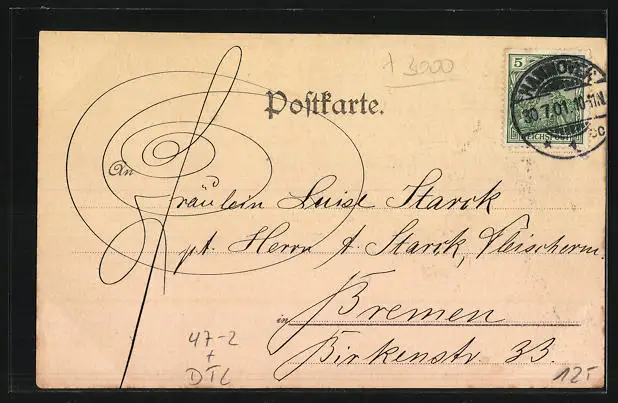 3000
Postkarte.
5
HANNOVER
10.7.01.10-11N.
REICHSPOST
An
Fräulein Luise Starck
pt. Herrn A. Starck, Fleischerm.
in Bremen
Birkenstr. 33.
47-2
+
DTL
12T